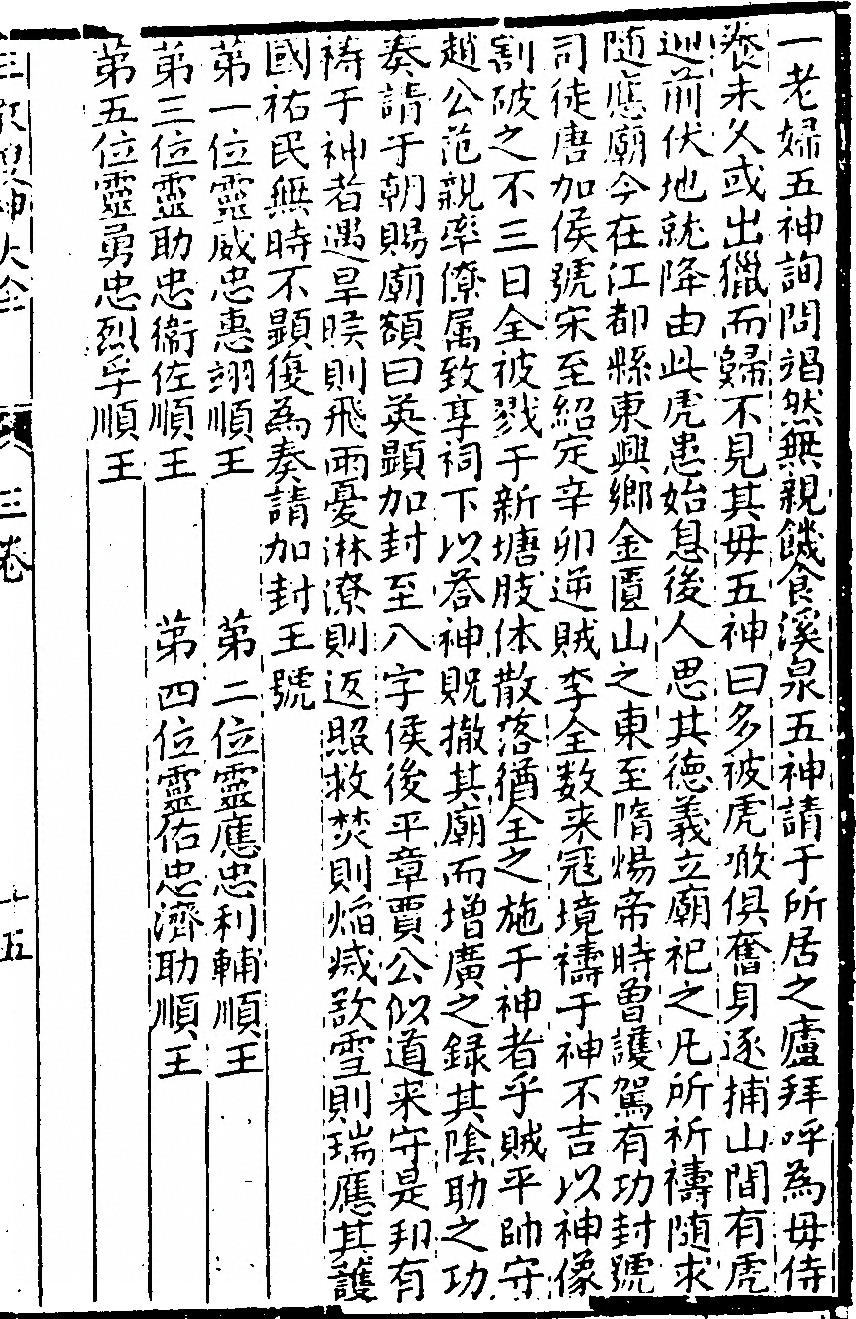 一老婦五神詢問竭然無親饑食溪泉五神請于所居之廬拜呼為毋侍
養未久或出獵而歸不見其毋五神曰多被虎噉俱奮身逐捕山間有虎
廵前伏地就降由此虎患始息後人思其德義立廟祀之凡所祈禱随求
随應廟今在江都縣東興鄉金匱山之東至隋煬帝時曾護駕有功封號
司徒唐加侯號宋至紹定辛卯逆賊李全数来冦境禱于神不吉以神像
割破之不三日全被戮于新塘肢体散落猶全之施于神者乎賊平帥守
趙公范親率僚属致享祠下以荅神貺撤其廟而增廣之録其陰助之功
奏請于朝賜廟額曰英顕加封至八字侯後平章賈公似道来守是邦有
祷于神者遇旱暵則飛雨憂淋潦則返照救焚則焰烕歉雪則瑞應其護
國祐民無時不顕復為奏請加封王號
第一位靈威忠惠翊順王　第二位靈應忠利輔順王
第三位靈助忠衛佐順王　第四位靈佑忠濟助順王
第五位靈勇忠烈孚順王
三教搜神大全　三卷　十五